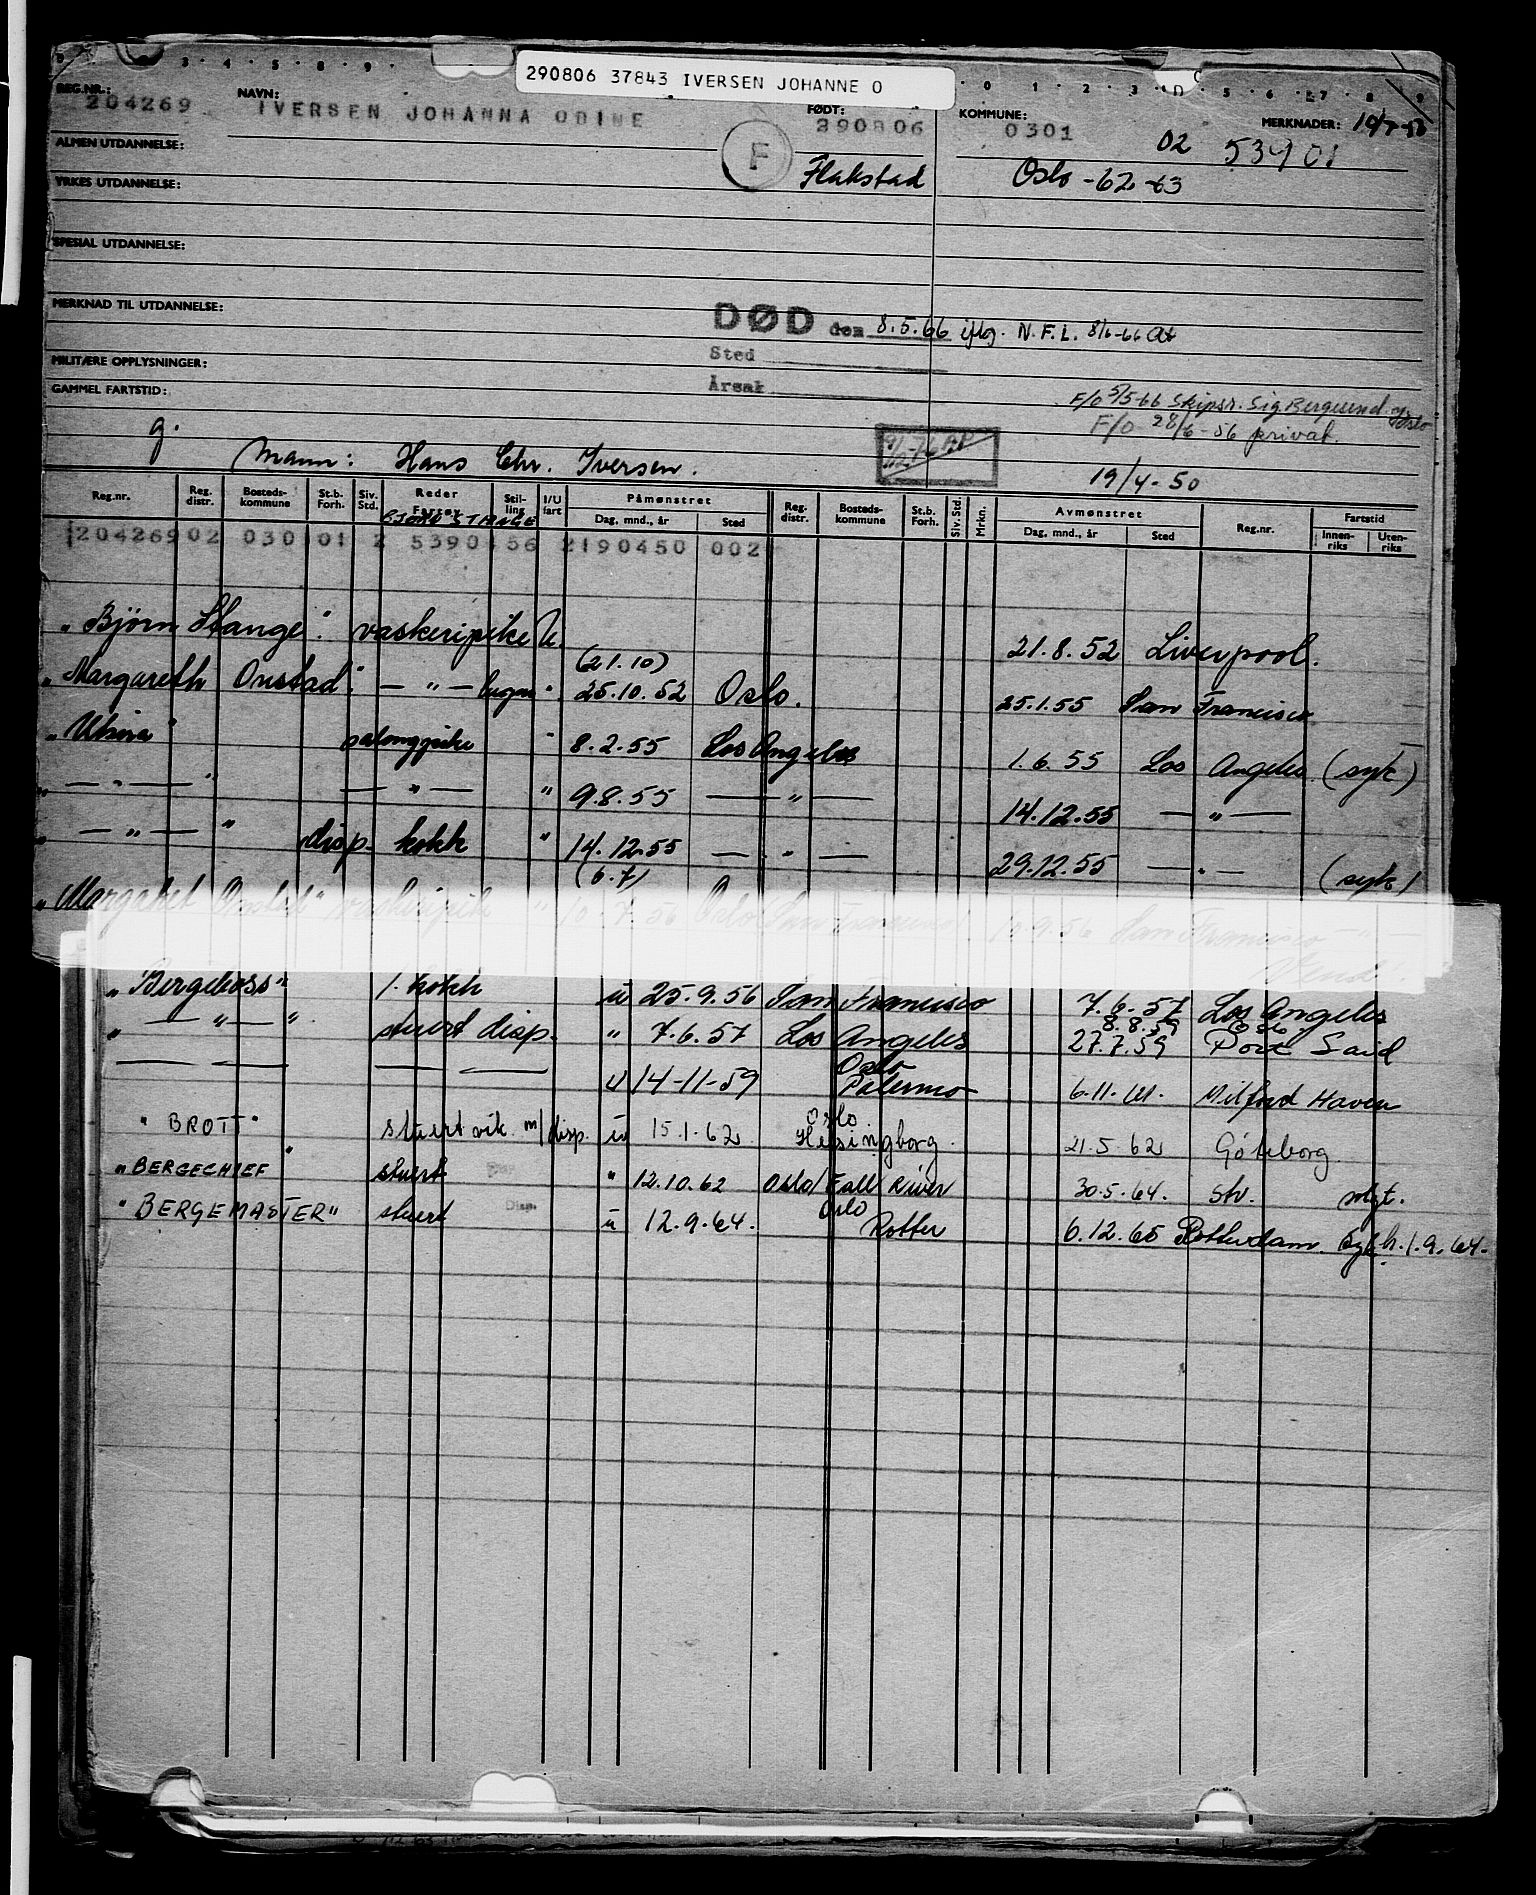 290806 37843 IVERSEN JOHANNE O
REG.NR.: 204269 NAVN: IVERSEN JOHANNA ODINE FØDT: 290806 KOMMUNE: 0301 MERKNADER:
02 53901
ALMEN UTDANNELSE: F Flakstad Oslo -62-63
YRKES UTDANNELSE:
SPESIAL UTDANNELSE:
MERKNAD TIL UTDANNELSE:
DØD den 8.5.66 iflg. N.F.L. 8/6-66 At
Sted
MILITÆRE OPPLYSNINGER:
Årsak
GAMMEL FARTSTID:
F/O 5/5-66 Skipsr. Sig Bergesend. Oslo
g. F/O 28/6-56 privat.
Mann: Hans Chr. Iversen.
19/4-50
Reg.nr. Reg. distr. Bosteds-kommune St.b. Forh. Siv. Std. Reder Fartøy Stil-ling I/U fart Påmønstret Dag, mnd., år Sted Reg. distr. Bosteds-kommune St.b. Forh. Siv. Std. Mrkn. Avmønstret Dag, mnd., år Sted Reg.nr. Fartstid Innen-riks Uten-riks
BJØRN STANGE
204269 02 030 01 2 5390 56 2190450 002
"Björn Stange". vaskeripike U. 21.8.52 Liverpool.
(21.10)
"Margareth Onstad" — " — " 25.10.52 Oslo. 25.1.55 San Francisco
salongpike " 8.2.55 Los Angeles 1.6.55 Los Angeles (syk)
" — " — " — " — " 9.8.55 — " — 14.12.55 — " —
" — " — " disp. kokk " 14.12.55 — " — 29.12.55 — " — (syk)
(6.7)
"Margaret Onstad" vaskeripike " 10.7.56 Oslo (San Francisco) 10.9.56 San Francisco — " —
"Bergeboss" 1. kokk u 25.9.56 San Francisco 7.6.57 Los Angeles
8.8.59 Oslo
" — " — " stuert disp. " 7.6.57 Los Angeles 27.7.59 Port Said
Oslo
— — — — u 14-11-59 Palermo 6.11.61. Milford Haven
Oslo
"BROTT" stuert vik. m/disp. u 15.1.62 Helsingborg. 21.5.62 Göteborg.
"BERGECHIEF" stuert " 12.10.62 Oslo/Fall River 30.5.64. Stv. solgt.
Oslo
"BERGEMASTER" stuert Disp. u 12.9.64. Rotter 6.12.65 Rotterdam. Syk h. 1.9.64.